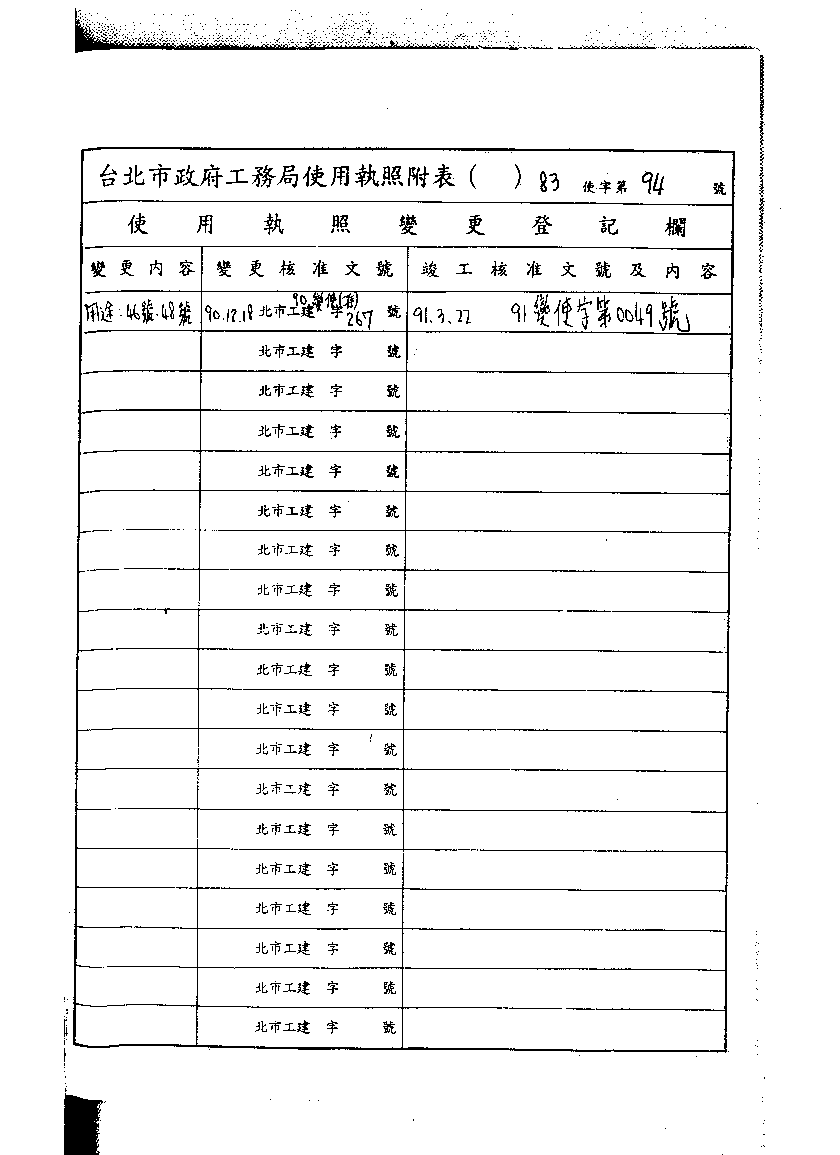 台北市政府工務局使用執照附表（　）83 使字第 94 號
使用執照變更登記欄
變更內容 變更核准文號 竣工核准文號及內容
用途:46號.48號 90.12.18 北市工建 90變使(准)字267 號 91.3.22 91變使字第0049號
北市工建 字 號
北市工建 字 號
北市工建 字 號
北市工建 字 號
北市工建 字 號
北市工建 字 號
北市工建 字 號
北市工建 字 號
北市工建 字 號
北市工建 字 號
北市工建 字 號
北市工建 字 號
北市工建 字 號
北市工建 字 號
北市工建 字 號
北市工建 字 號
北市工建 字 號
北市工建 字 號